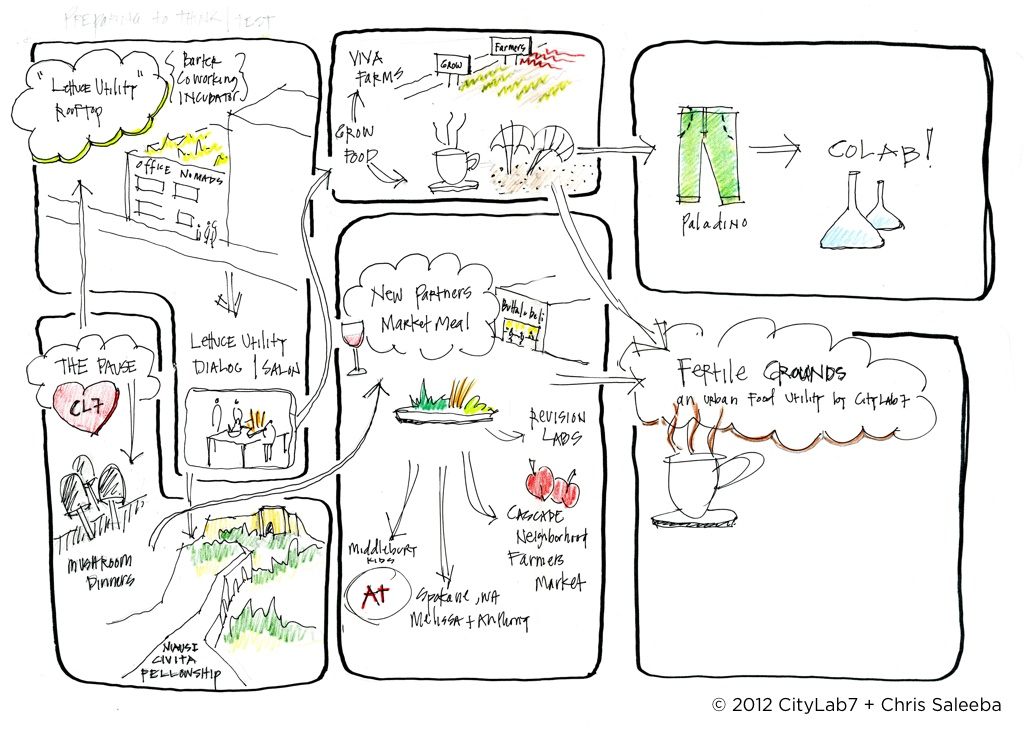 PREPARING TO THINK / TEST
"Lettuce Utility"
Rooftop
{Barter
Coworking
INCUBATOR}
OFFICE NOMADS
LETTUCE UTILITY
DIALOG / SALON
THE PAUSE
CL7
MUSHROOM
Dinners
CIVITA
FELLOWSHIP
VIVA
FARMS
GROW
FOOD
GROW
Farmers
New Partners
Market Meal
Buffalo Deli
REVISION
LABS
CASCADE
Neighborhood
Farmers
Market
Middlebury
KIDS
A+
Spokane, WA
Melissa +
Paladino
COLAB!
FERTILE GROUNDS
an urban Food Utility by CityLab7
© 2012 CityLab7 + Chris Saleeba